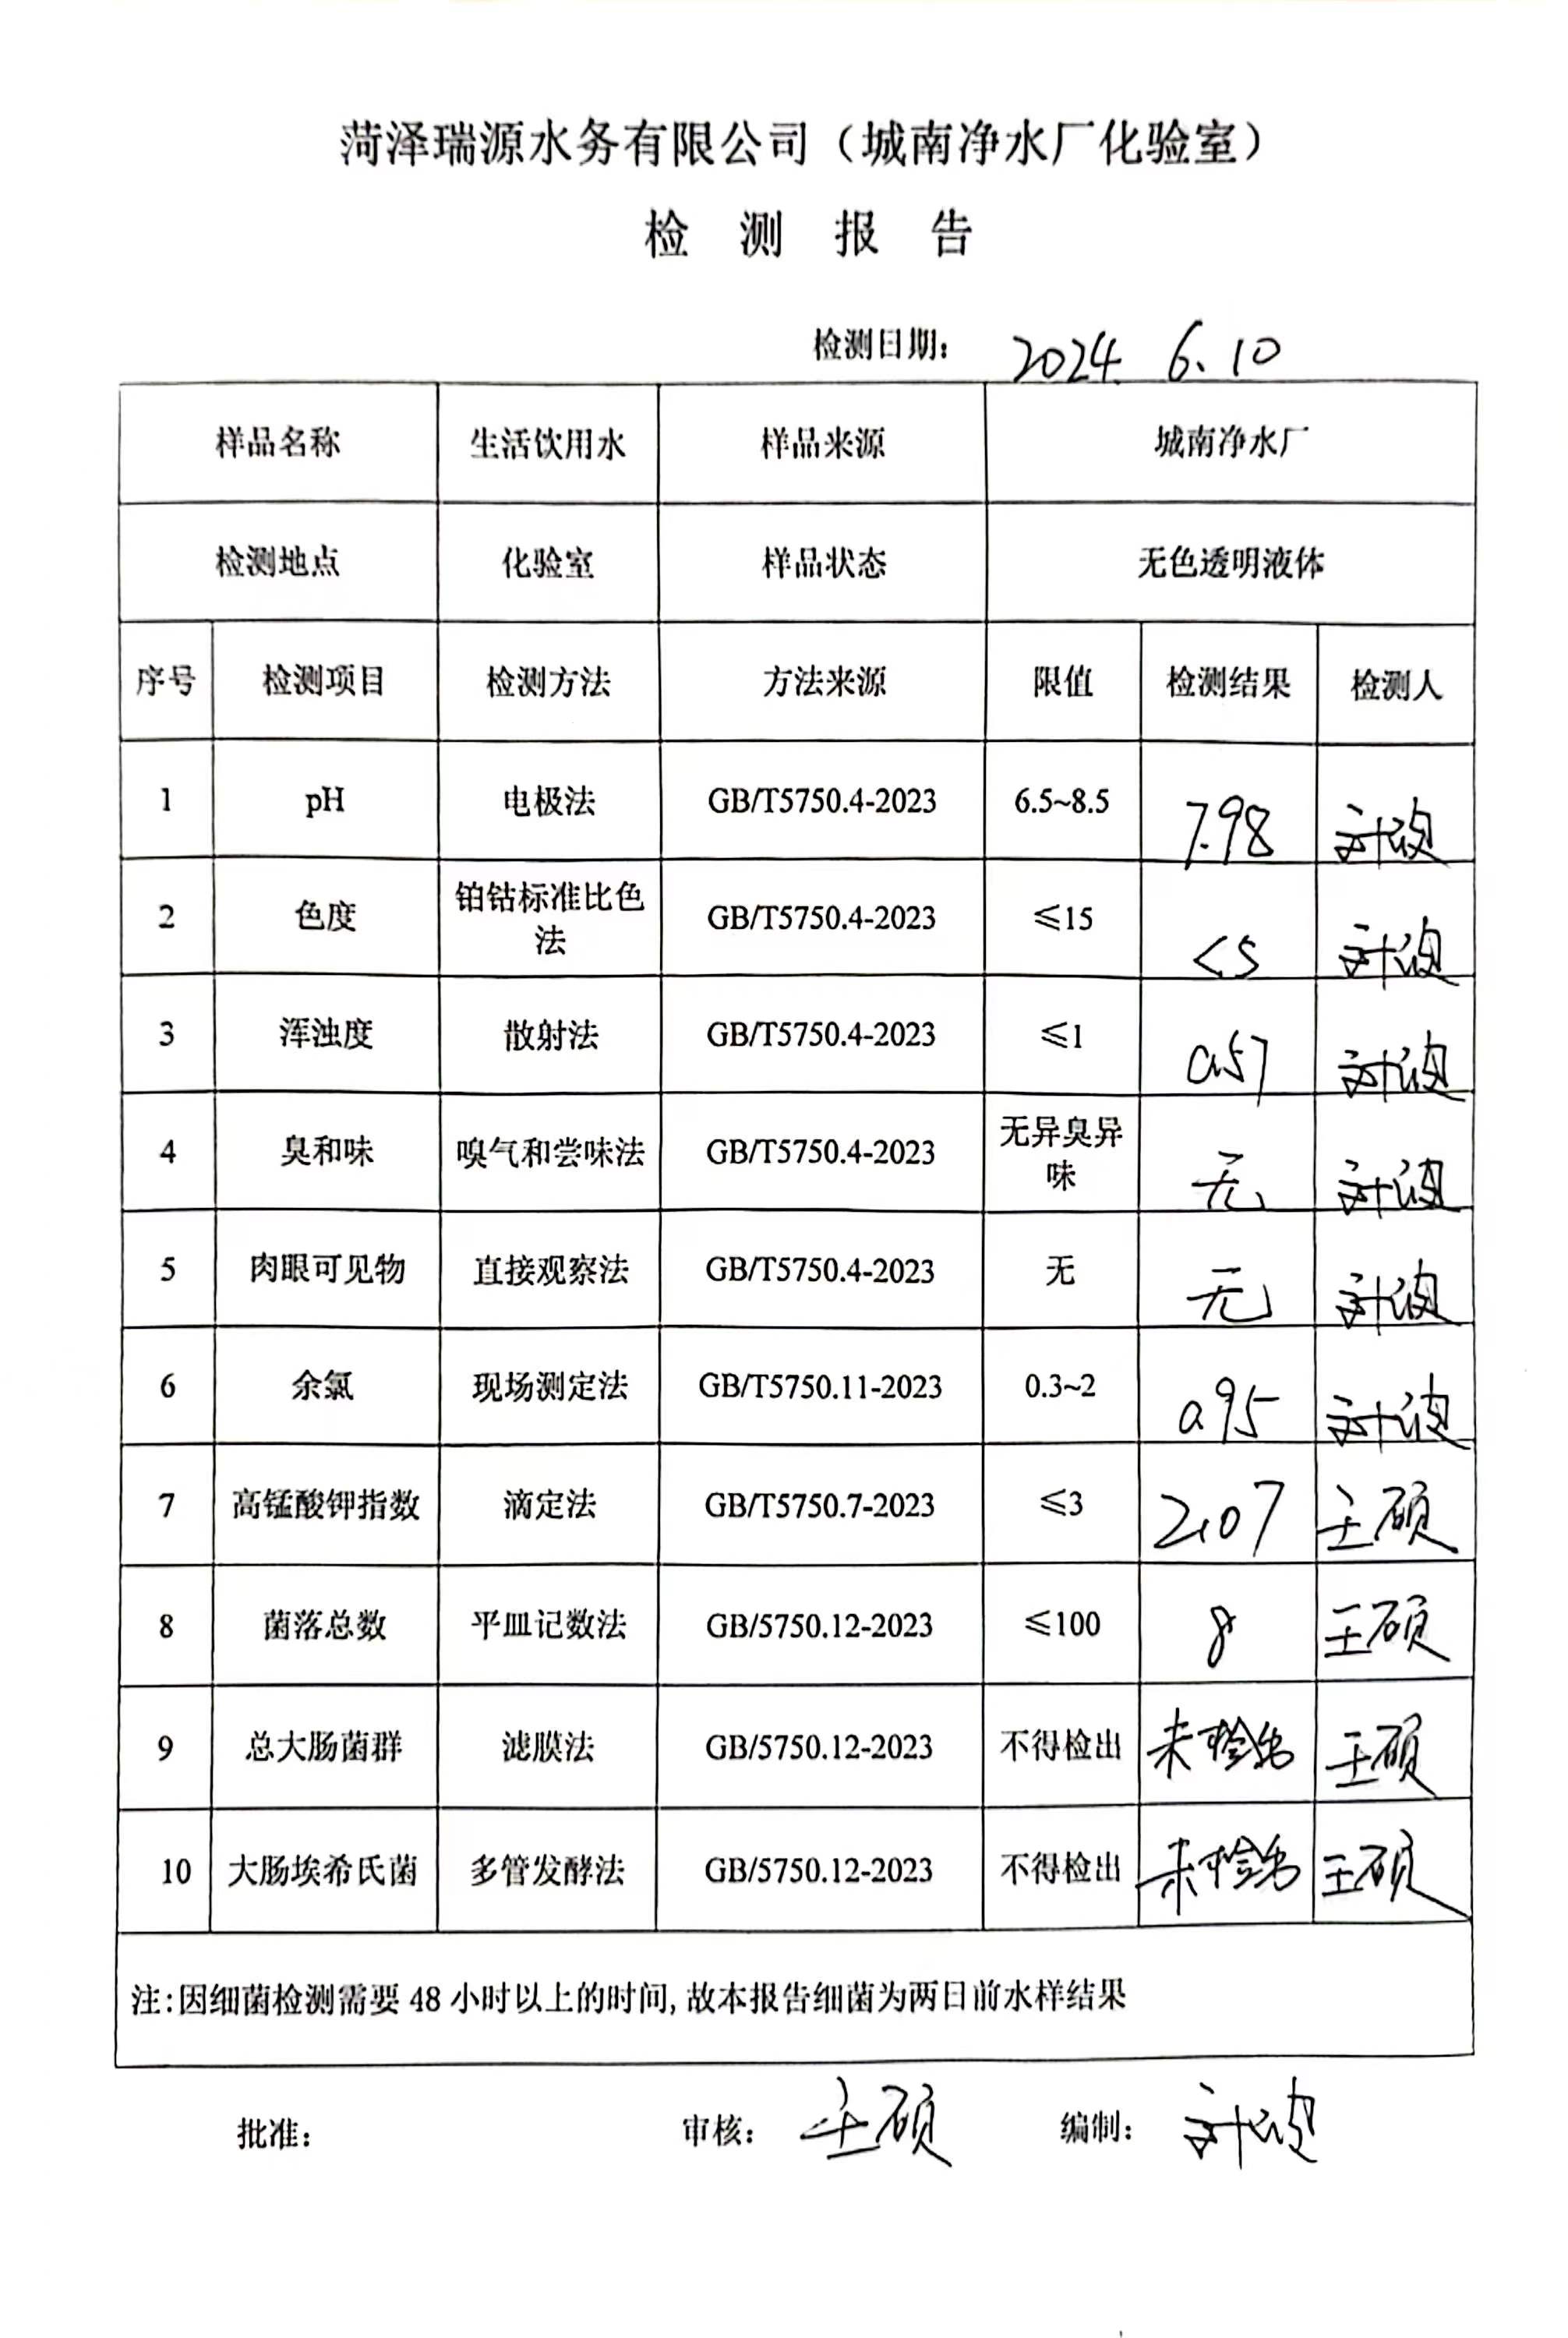 菏泽瑞源水务有限公司（城南净水厂化验室）
检 测 报 告
检测日期： 2024. 6.10
样品名称 生活饮用水 样品来源 城南净水厂
检测地点 化验室 样品状态 无色透明液体
序号 检测项目 检测方法 方法来源 限值 检测结果 检测人
1 pH 电极法 GB/T5750.4-2023 6.5~8.5 7.98 刘波
2 色度 铂钴标准比色法 GB/T5750.4-2023 ≤15 <5 刘波
3 浑浊度 散射法 GB/T5750.4-2023 ≤1 0.57 刘波
4 臭和味 嗅气和尝味法 GB/T5750.4-2023 无异臭异味 无 刘波
5 肉眼可见物 直接观察法 GB/T5750.4-2023 无 无 刘波
6 余氯 现场测定法 GB/T5750.11-2023 0.3~2 0.95 刘波
7 高锰酸钾指数 滴定法 GB/T5750.7-2023 ≤3 2.07 王硕
8 菌落总数 平皿记数法 GB/5750.12-2023 ≤100 8 王硕
9 总大肠菌群 滤膜法 GB/5750.12-2023 不得检出 未检出 王硕
10 大肠埃希氏菌 多管发酵法 GB/5750.12-2023 不得检出 未检出 王硕
注:因细菌检测需要 48 小时以上的时间, 故本报告细菌为两日前水样结果
批准： 审核： 王硕 编制： 刘波